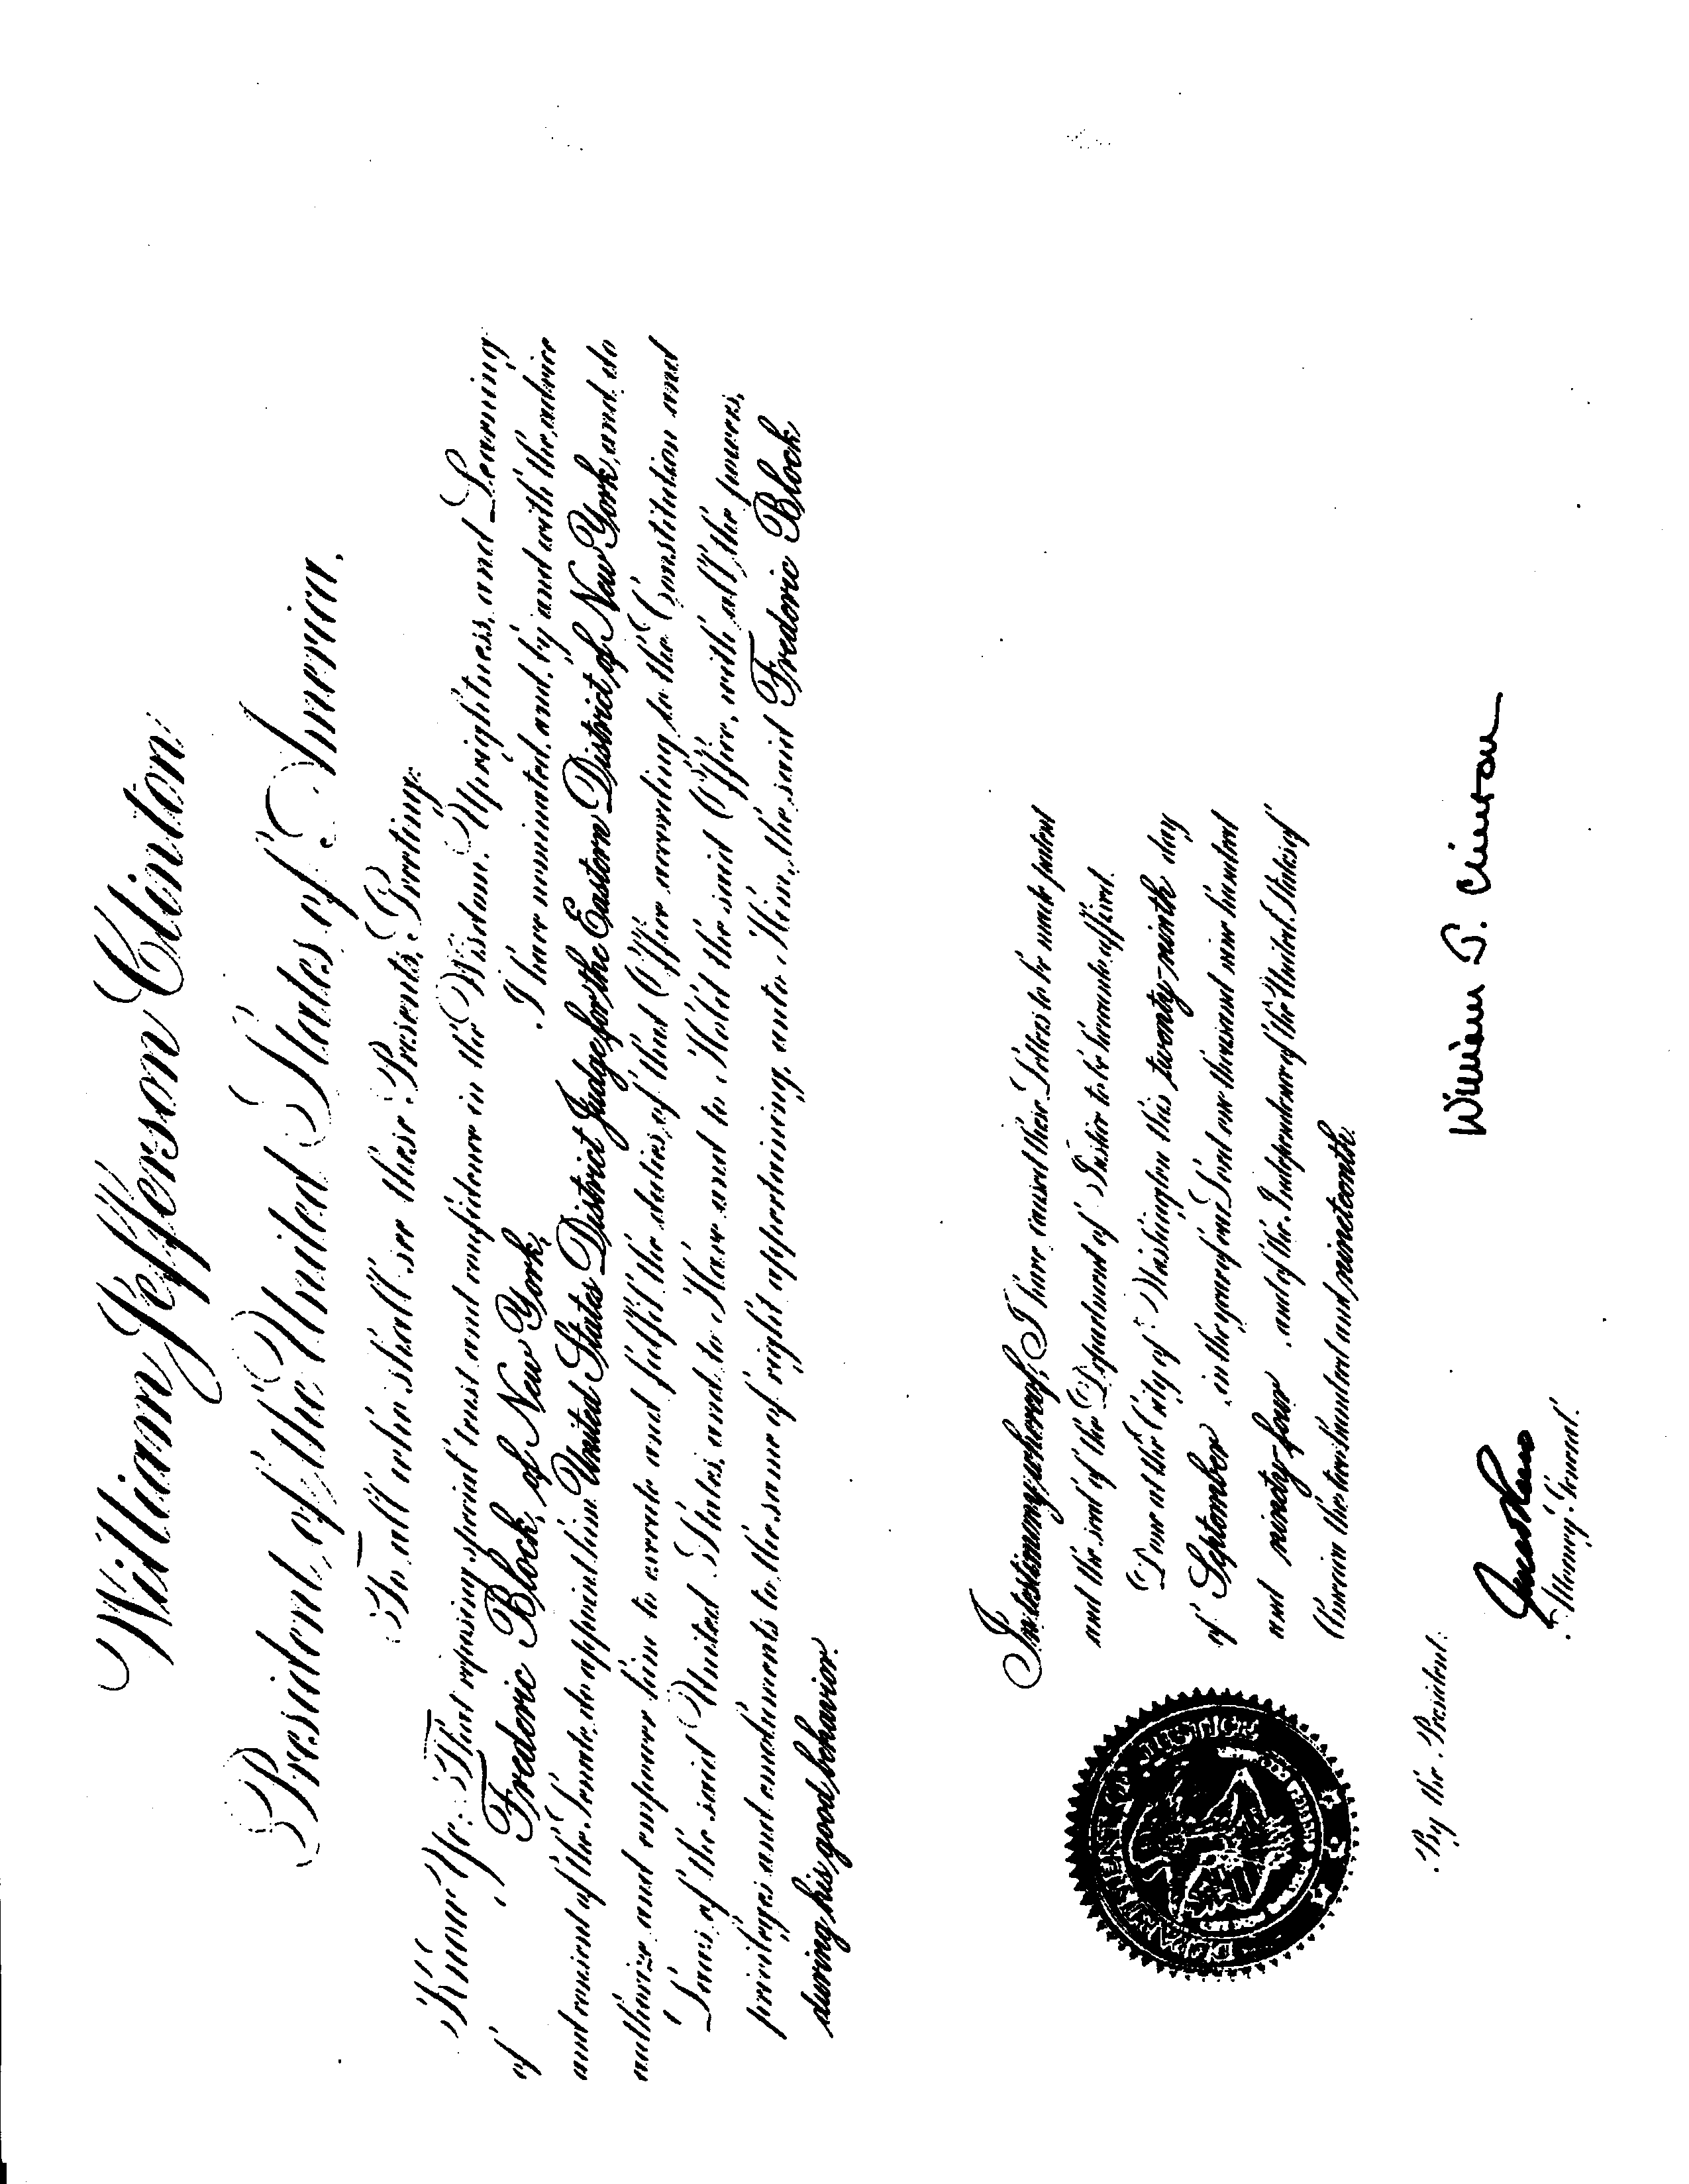 William Jefferson Clinton
President of the United States of America.
To all who shall see these Presents, Greeting:
Know Ye: That reposing special trust and confidence in the Wisdom, Uprightness, and Learning
of Frederic Block, of New York, I have nominated, and, by and with the advice
and consent of the Senate, do appoint him United States District Judge for the Eastern District of New York, and do
authorize and empower him to execute and fulfil the duties of that Office according to the Constitution and
Laws of the said United States, and to Have and to Hold the said Office, with all the powers,
privileges and emoluments to the same of right appertaining, unto Him, the said Frederic Block
during his good behavior.
In testimony whereof, I have caused these Letters to be made patent
and the seal of the Department of Justice to be hereunto affixed.
Done at the City of Washington this twenty-ninth day
of September, in the year of our Lord one thousand nine hundred
and ninety-four and of the Independence of the United States of
America the two hundred and nineteenth.
DEPARTMENT OF JUSTICE
William J. Clinton
By the President:
Janet Reno
Attorney General.